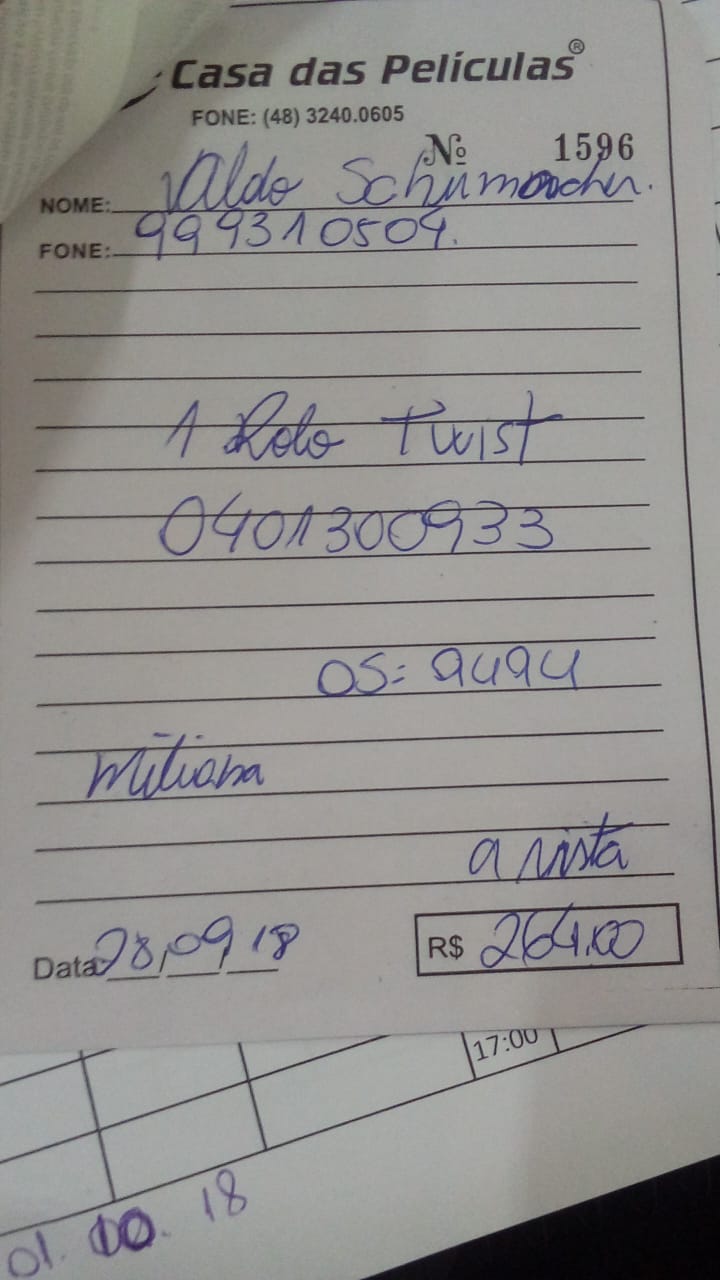 Casa das Películas®
FONE: (48) 3240.0605
Nº 1596
NOME: Valdo Schumacher.
FONE: 999310504.
1 Rolo Twist
0401300933
OS: 9494
a vista
Data 28/09/18
R$ 264,00
17:00
01.10.18